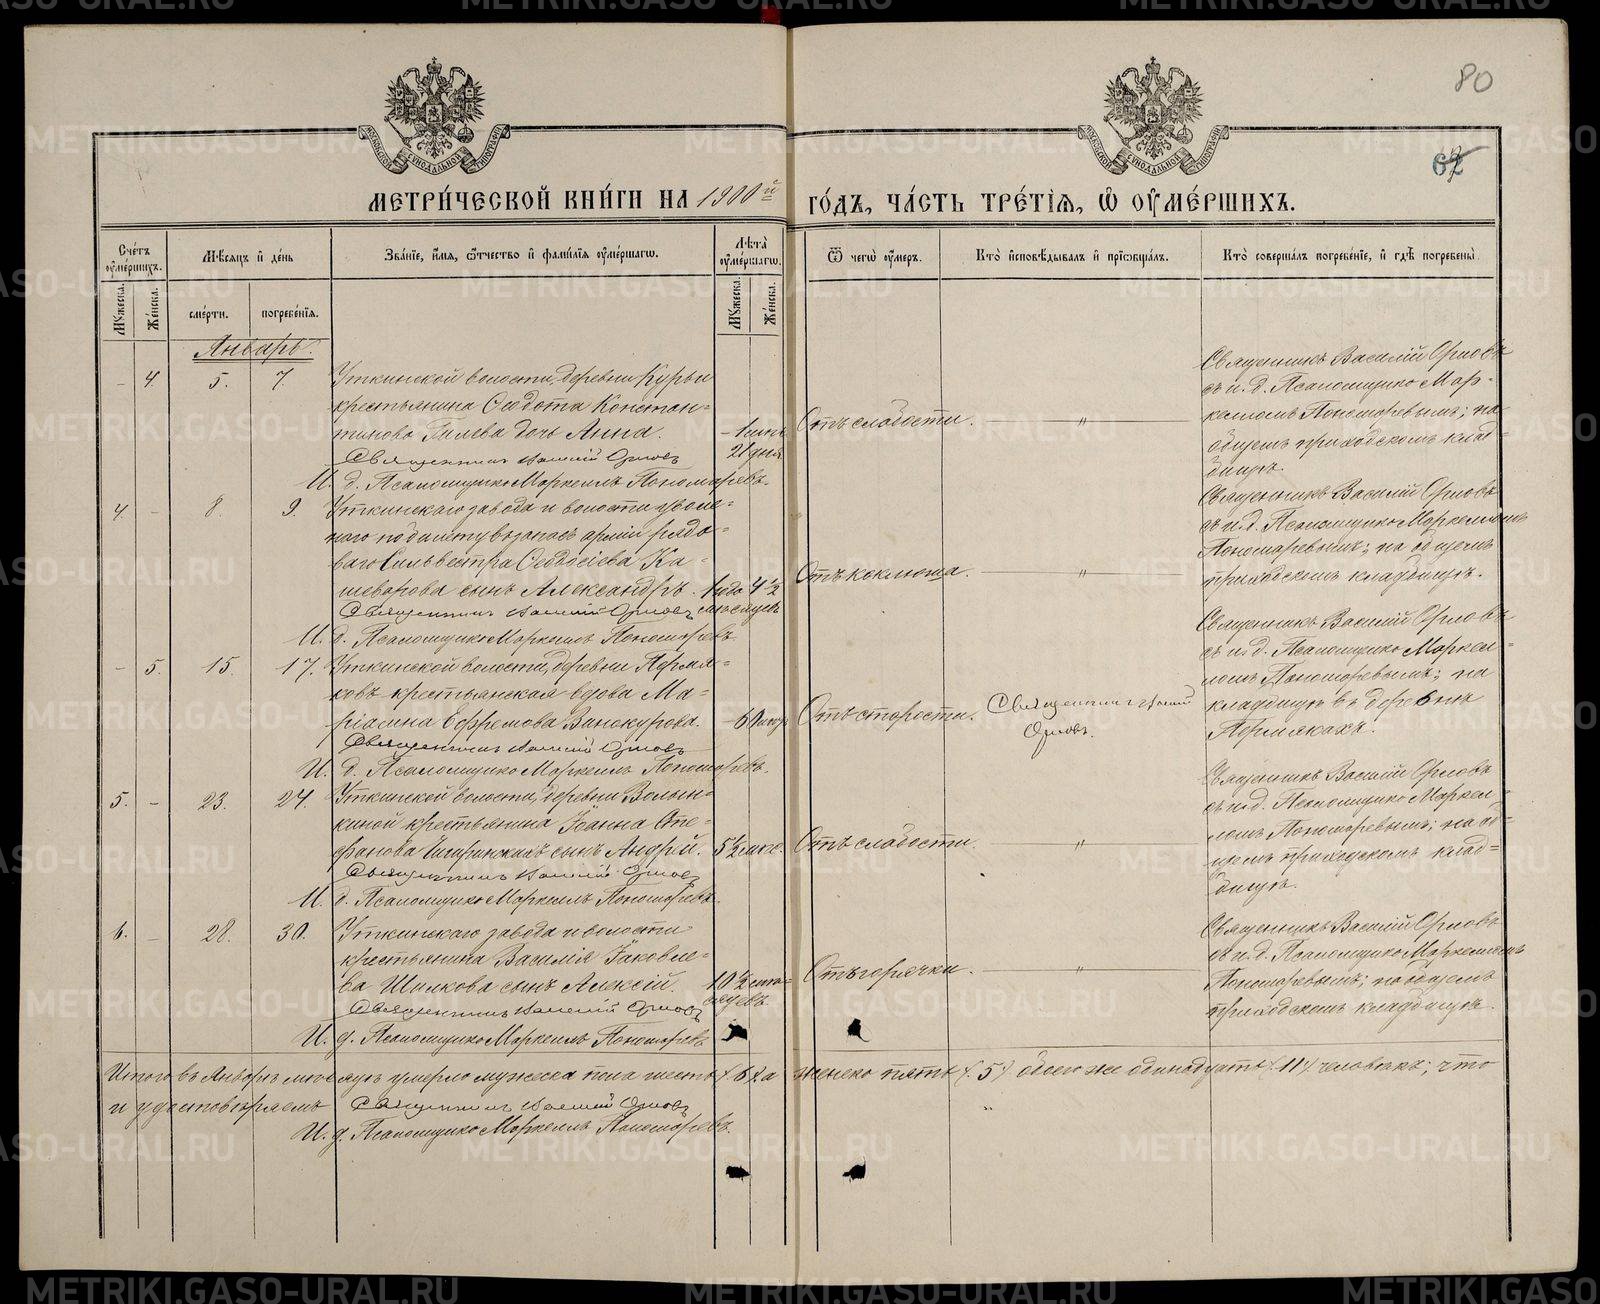 80
62
МЕТРИ́ЧЕСКОЙ КНИ́ГИ НА 1900й ГО́ДЪ, ЧА́СТЬ ТРЕ́ТІѦ, Ѡ҆ ОУ҆МЕ́РШИХЪ.
Сче́тъ оу҆ме́ршихъ.
Мѣ́сяцъ и҆ де́нь
Зва́нїе, и҆́мя, ѻ҆́тчество и҆ фами́лїя оу҆ме́ршагѡ.
Лѣ́та оу҆ме́ршагѡ.
Ѿ чегѡ̀ оу҆́меръ.
Кто̀ и҆сповѣ́дывалъ и҆ прїѡбща́лъ.
Кто̀ соверша́лъ погребе́нїе, и҆ гдѣ̀ погребены̀.
Му́жеска.
Же́нска.
сме́рти.
погребе́нїя.
Му́жеска.
Же́нска.
Январь.
– 4. 5. 7.
Уткинской волости, деревни Курьи
крестьянина Федота Констан=
тинова Гилева дочь Анна.
– 1 мѣс. 21 дня
Священникъ Василій Орловъ
И. д. Псаломщика Маркеллъ Пономаревъ.
Отъ слабости.
"
Священникъ Василій Орловъ
съ и. д. Псаломщика Мар-
келломъ Пономаревымъ; на
общемъ приходскомъ клад-
бищѣ.
4. – 8. 9.
Уткинскаго завода и волости уволен-
наго по билету въ запасъ арміи рядо-
ваго Сильвестра Федосіева Ка-
шеварова сынъ Александръ.
1 годъ 4 1/2 мѣсяцевъ
Священникъ Василій Орловъ
И. д. Псаломщика Маркеллъ Пономаревъ
Отъ коклюша.
"
Священникъ Василій Орловъ
съ и. д. Псаломщика Маркелломъ
Пономаревымъ; на общемъ
приходскомъ кладбищѣ.
– 5. 15. 17.
Уткинской волости, деревни Пермя-
ковъ крестьянская вдова Ма-
ріамна Ефремова Винокурова.
– 60 лѣтъ
Священникъ Василій Орловъ
И. д. Псаломщика Маркеллъ Пономаревъ.
Отъ старости.
Священникъ Василій
Орловъ.
Священникъ Василій Орловъ
съ и. д. Псаломщика Маркел-
ломъ Пономаревымъ; на
кладбищѣ въ деревнѣ
Пермякахъ.
5. – 23. 24.
Уткинской волости, деревни Волын-
киной крестьянина Іоанна Сте-
фанова сынъ Андрей.
5 1/2 мѣс.
Священникъ Василій Орловъ
И. д. Псаломщика Маркеллъ Пономаревъ.
Отъ слабости.
"
Священникъ Василій Орловъ
съ и. д. Псаломщика Маркел-
ломъ Пономаревымъ; на об-
щемъ приходскомъ клад-
бищѣ.
6. – 28. 30.
Уткинскаго завода и волости
крестьянина Василія Іаковле-
ва Шилкова сынъ Алексій.
10 1/2 мѣсяцевъ
Священникъ Василій Орловъ
И. д. Псаломщика Маркеллъ Пономаревъ
Отъ горячки.
"
Священникъ Василій Орловъ
съ и. д. Псаломщика Маркелломъ
Пономаревымъ; на общемъ
приходскомъ кладбищѣ.
Итого въ Январѣ мѣсяцѣ умерло мужеска пола шесть (6) а женска пять (5) обоего же одинадцать (11) человѣкъ; что
и удостовѣряемъ Священникъ Василій Орловъ
И. д. Псаломщика Маркеллъ Пономаревъ.
METRIKI.GASO-URAL.RU